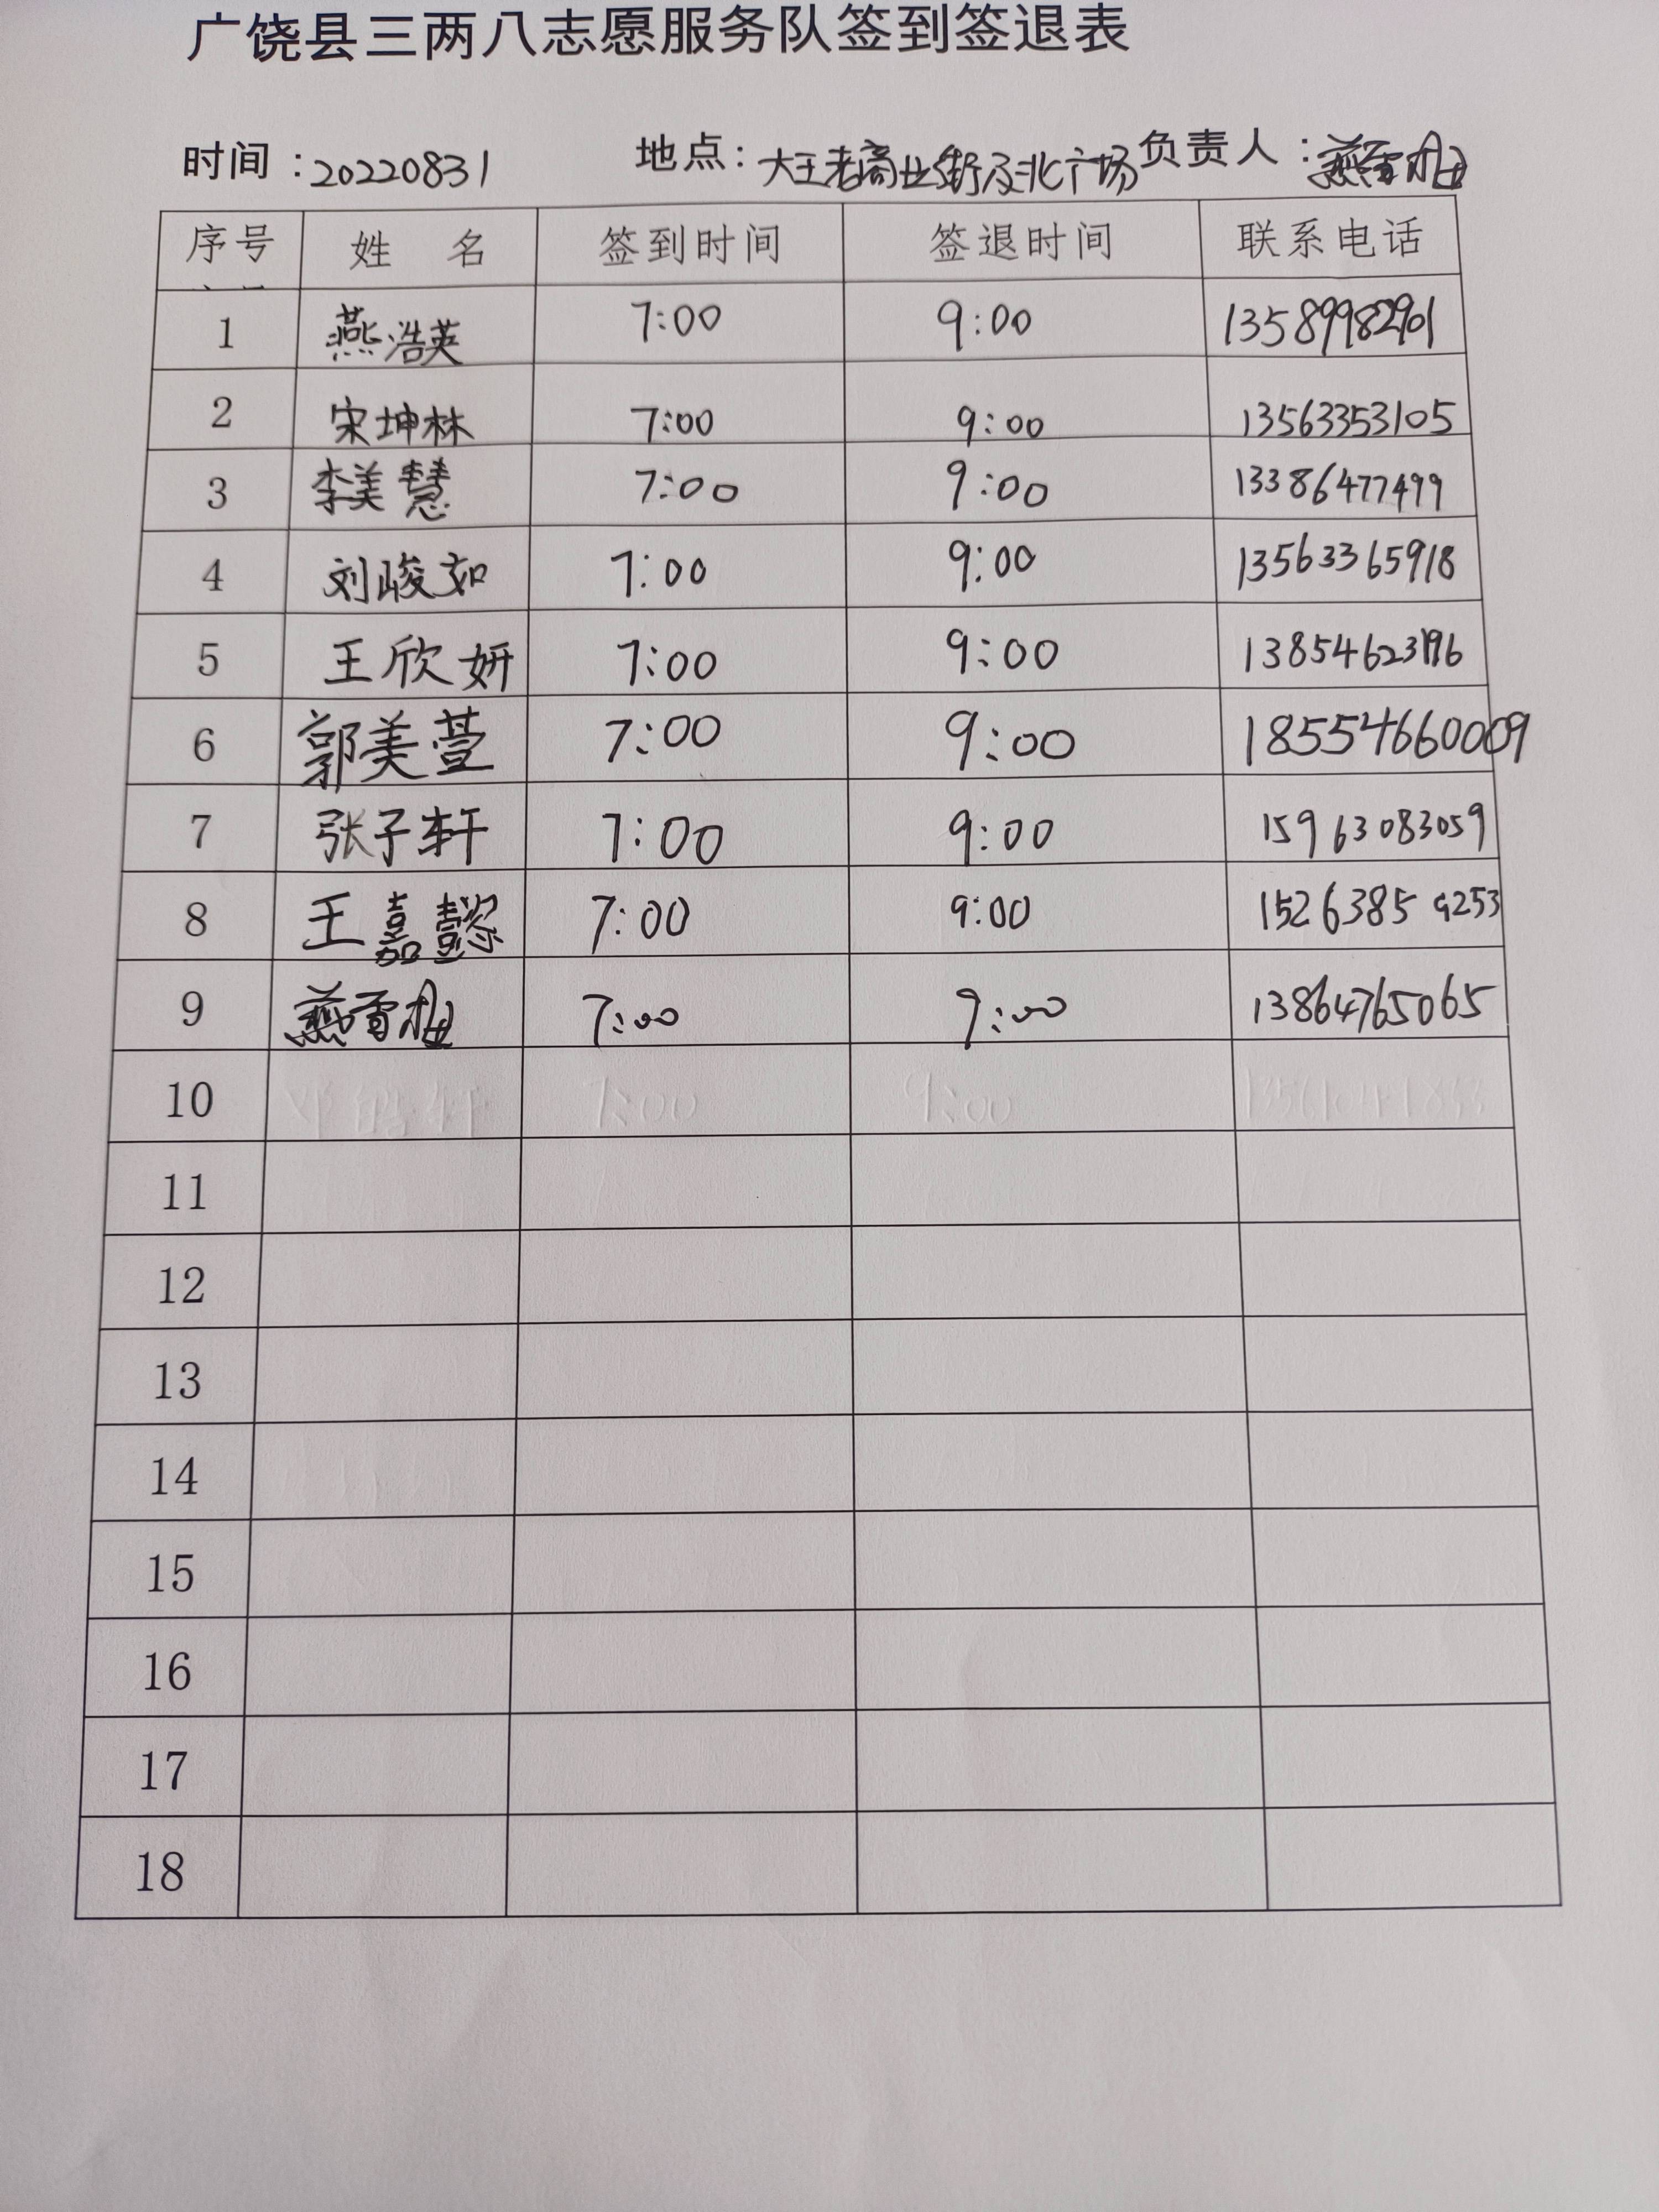 广饶县三两八志愿服务队签到签退表
时间:20220831 地点:大王老商业街及北广场 负责人:燕雪梅
序号 姓 名 签到时间 签退时间 联系电话
1 燕浩英 7:00 9:00 13589982901
2 宋坤林 7:00 9:00 13563353105
3 李美慧 7:00 9:00 13386477499
4 刘峻如 7:00 9:00 13563365918
5 王欣妍 7:00 9:00
6 郭美萱 7:00 9:00 18554660009
7 张子轩 7:00 9:00 15963083059
8 王嘉懿 7:00 9:00 15263859253
9 7:00 9:00 13864765065
10 7:00 9:00
11
12
13
14
15
16
17
18